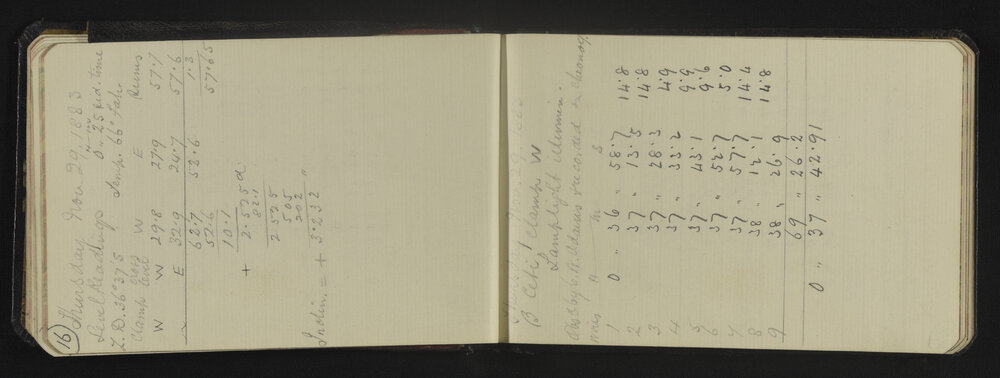 (16) Thursday Nov. 29, 1883
Level Readings 0h 25m sid. time
Z.D. 36° 37'.5 Temp. 66° Fahr.
Clamp Cross Level W E Runs
W W 29.8 27.9 57.7
E 32.9 24.7 57.6
62.7 52.6 1.3
52.6 57.65
10.1
+ 2.525 d
82.1
2525
505
202
Inclin. = + 3.232 "
Thursday Nov. 29, 1883
β Ceti Clamp W
Lamplight illumin.
Obs by Adams recorded on chronog.
wires h m s
1 0 " 36 " 58.7 14.8
2 37 " 13.5 14.8
3 37 " 28.3 4.9
4 37 " 33.2 9.9
5 37 " 43.1 9.6
6 37 " 52.7 5.0
7 37 " 57.7 14.4
8 38 " 12.1 14.8
9 38 " 26.9
69 " 26.2
0 " 37 " 42.91